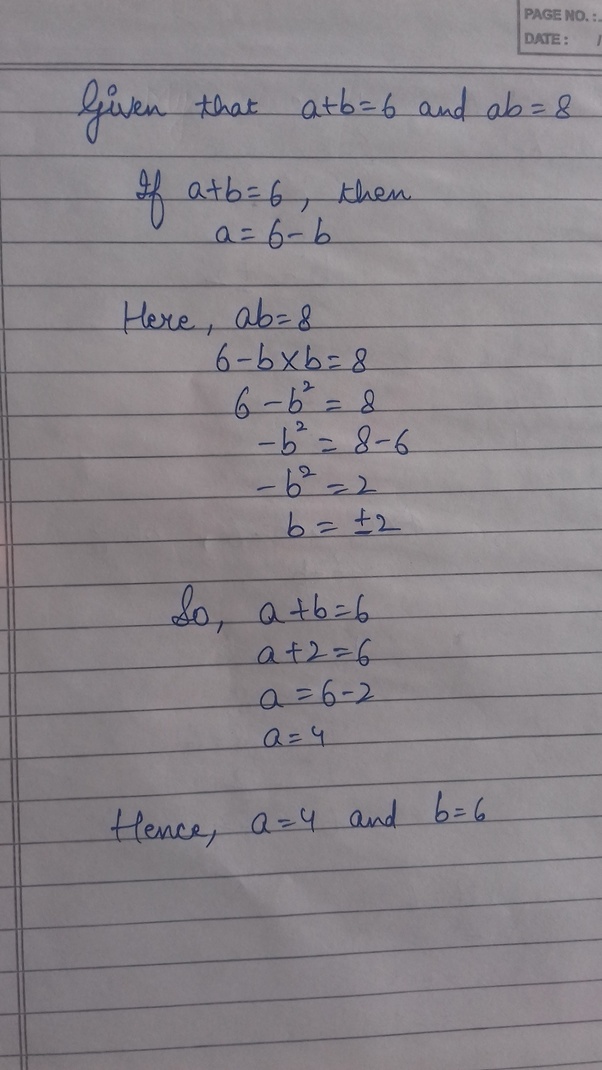 PAGE NO.:
DATE: /
Given that a+b=6 and ab=8
If a+b=6, then
a=6-b
Here, ab=8
6-b×b=8
6-b²=8
-b²=8-6
-b²=2
b=±2
So, a+b=6
a+2=6
a=6-2
a=4
Hence, a=4 and b=6